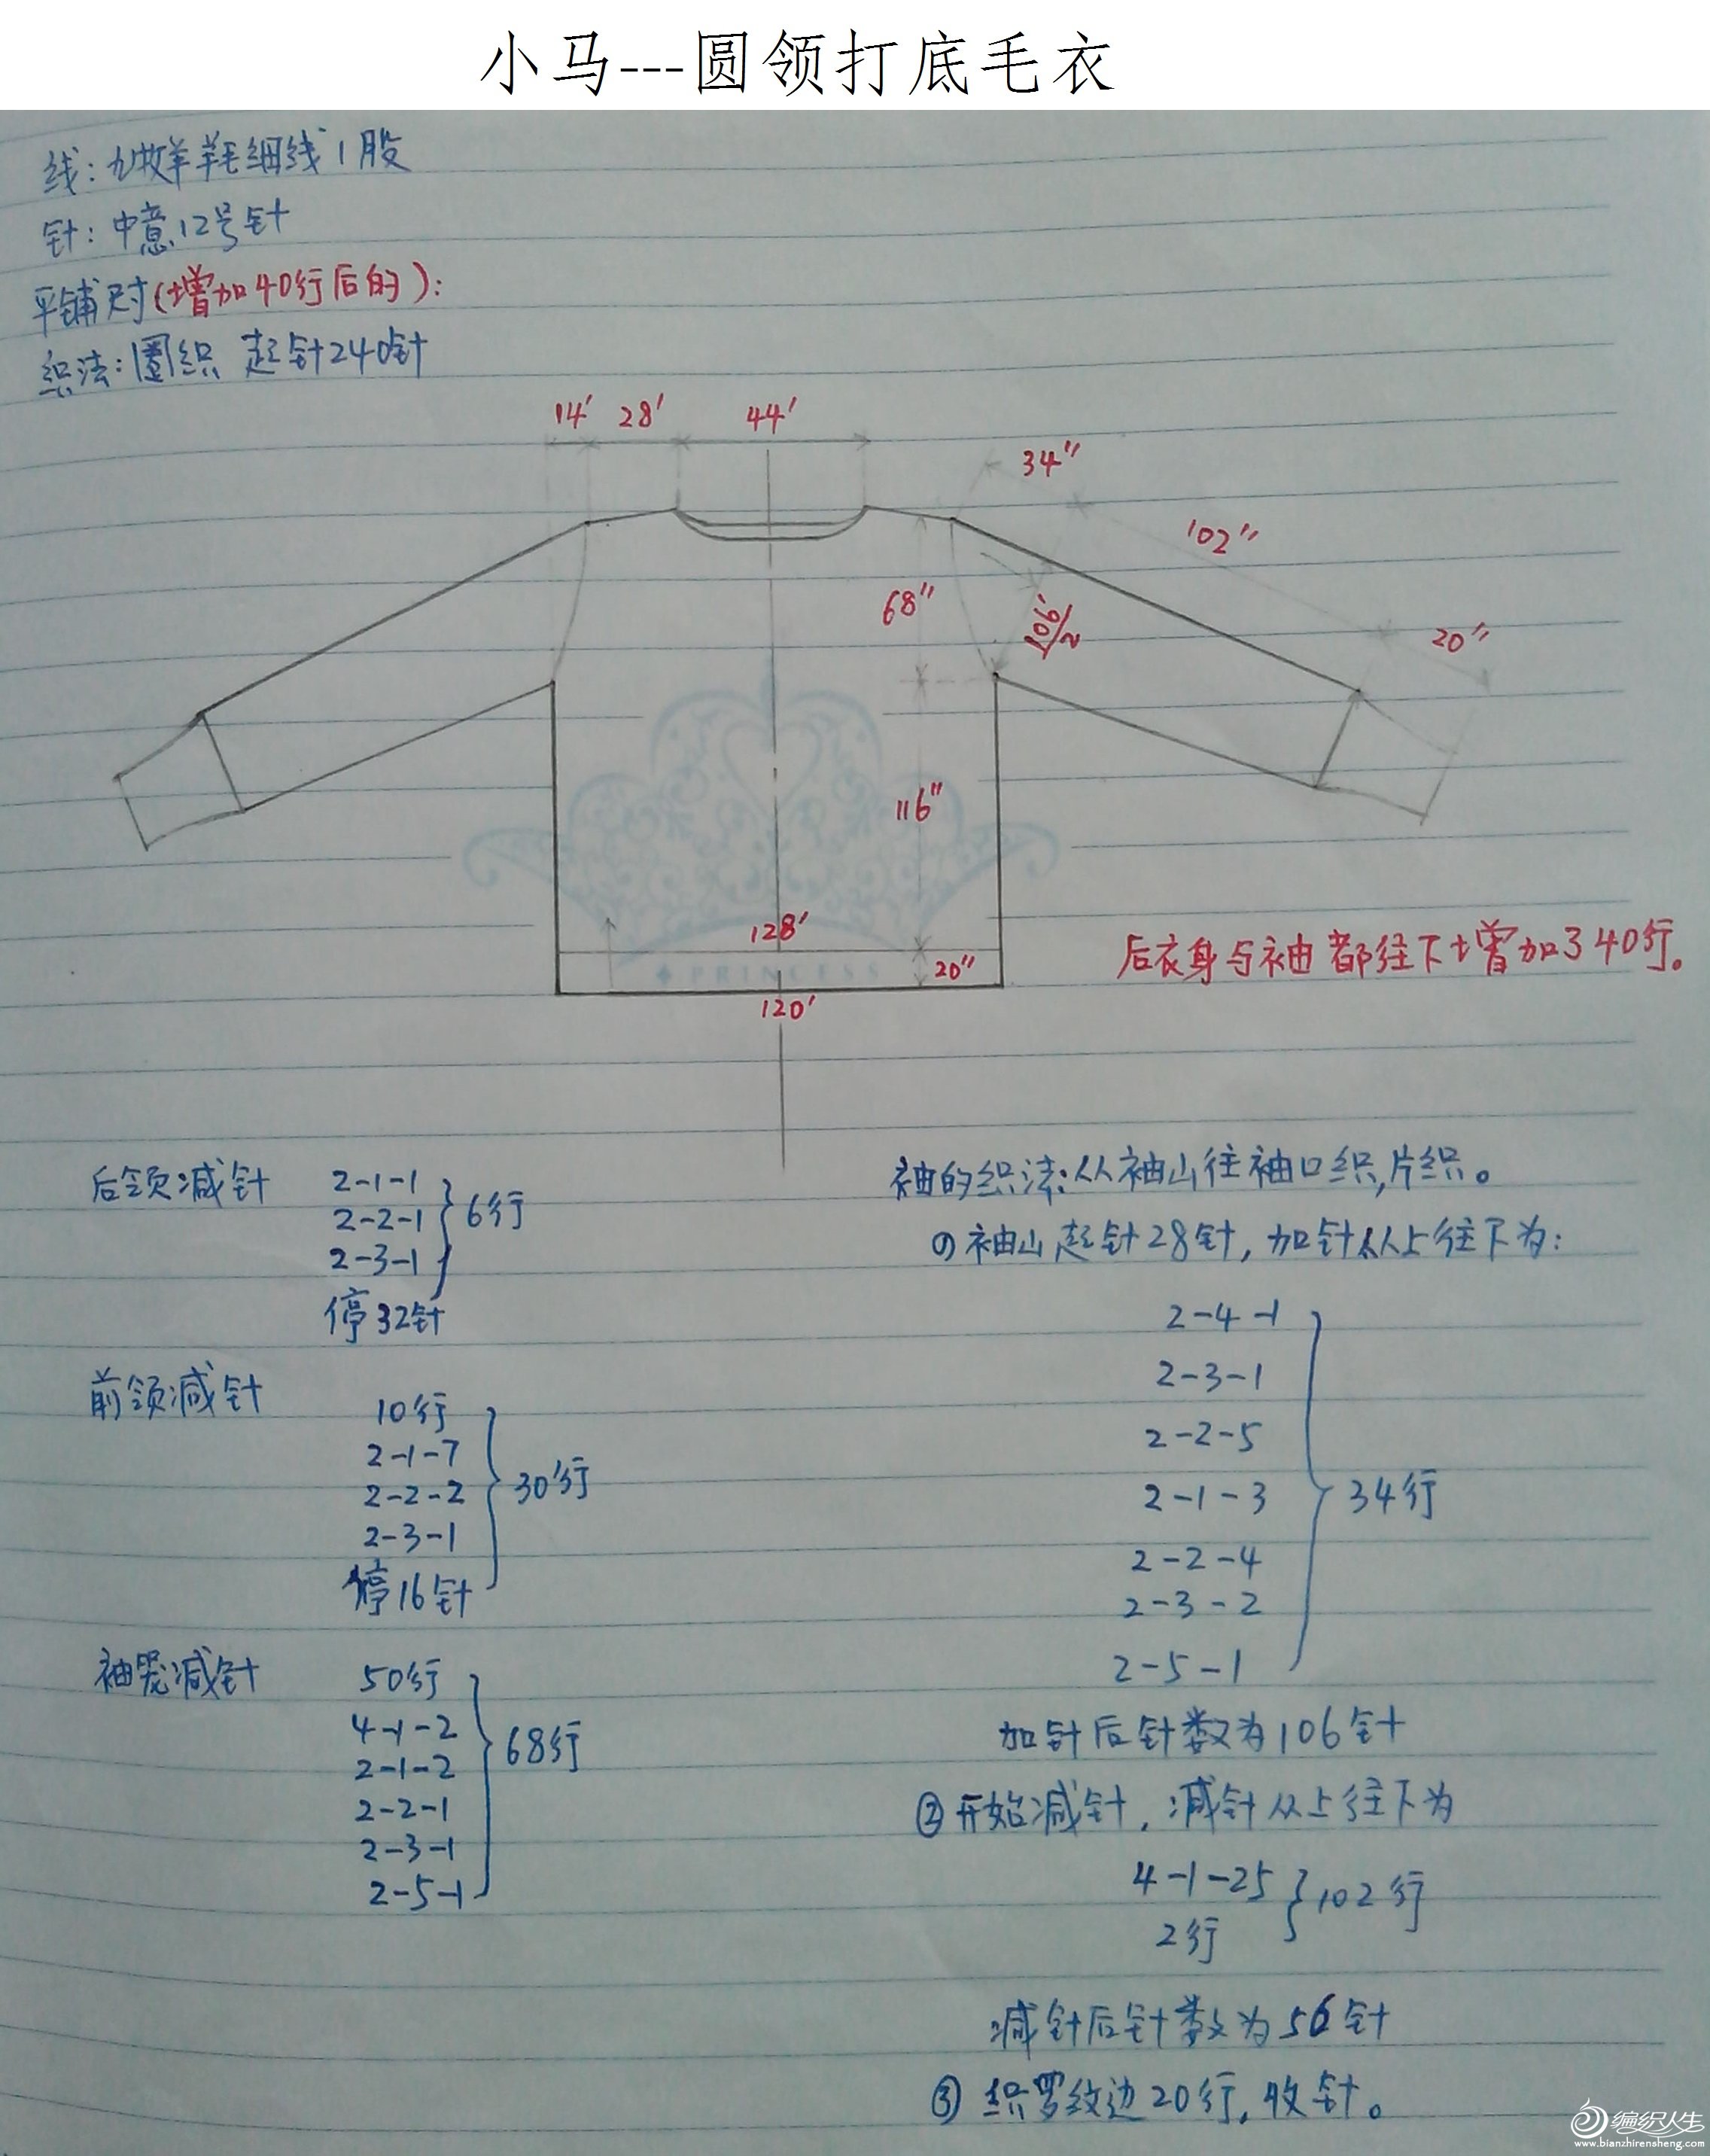 小马---圆领打底毛衣
线:九牧羊羊毛细线1股
针:中意12号针
平铺尺寸(增加40行后的):
织法:圈织 起针240针
14' 28' 44'
34"
102"
20"
68"
106'/2
116"
128'
20"
120'
PRINCESS
后衣身与袖都往下增加了40行。
后领减针
2-1-1
2-2-1
2-3-1
6行
停32针
前领减针
10行
2-1-7
2-2-2
2-3-1
停16针
30行
袖笼减针
50行
4-1-2
2-1-2
2-2-1
2-3-1
2-5-1
68行
袖的织法:从袖山往袖口织,片织。
①袖山起针28针,加针从上往下为:
2-4-1
2-3-1
2-2-5
2-1-3
2-2-4
2-3-2
2-5-1
34行
加针后针数为106针
②开始减针,减针从上往下为
4-1-25
2行
102行
减针后针数为56针
③织罗纹边20行,收针。
编织人生
www.bianzhirensheng.com